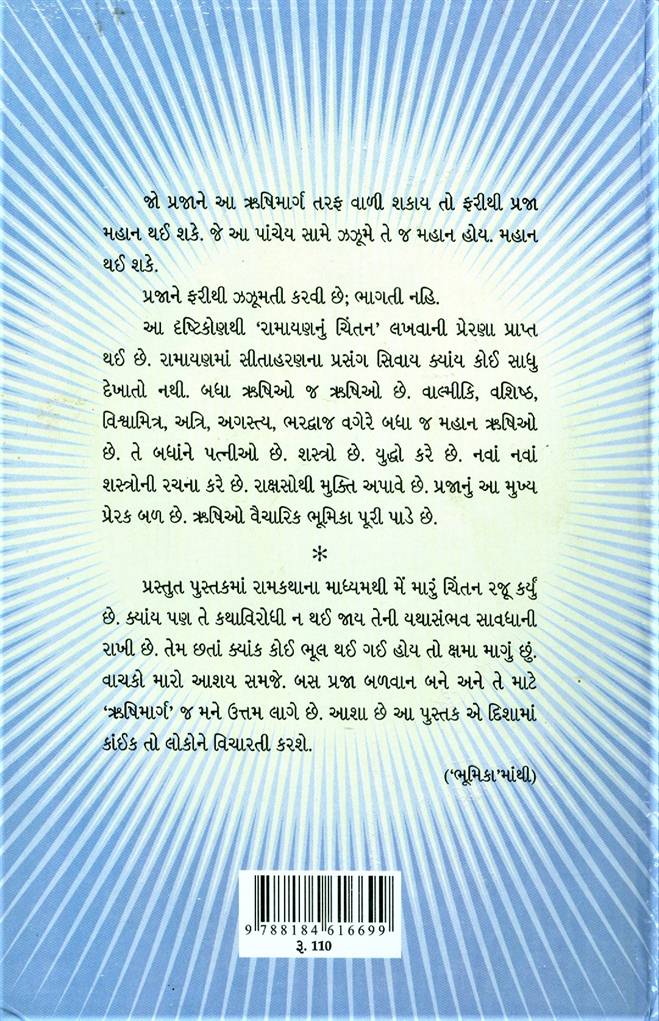 જો પ્રજાને આ ઋષિમાર્ગ તરફ વાળી શકાય તો ફરીથી પ્રજા
મહાન થઈ શકે. જે આ પાંચેય સામે ઝઝૂમે તે જ મહાન હોય. મહાન
થઈ શકે.
પ્રજાને ફરીથી ઝઝૂમતી કરવી છે; ભાગતી નહિ.
આ દૃષ્ટિકોણથી ‘રામાયણનું ચિંતન’ લખવાની પ્રેરણા પ્રાપ્ત
થઈ છે. રામાયણમાં સીતાહરણના પ્રસંગ સિવાય ક્યાંય કોઈ સાધુ
દેખાતો નથી. બધા ઋષિઓ જ ઋષિઓ છે. વાલ્મીકિ, વશિષ્ઠ,
વિશ્વામિત્ર, અત્રિ, અગસ્ત્ય, ભરદ્વાજ વગેરે બધા જ મહાન ઋષિઓ
છે. તે બધાંને પત્નીઓ છે. શસ્ત્રો છે. યુદ્ધો કરે છે. નવાં નવાં
શસ્ત્રોની રચના કરે છે. રાક્ષસોથી મુક્તિ અપાવે છે. પ્રજાનું આ મુખ્ય
પ્રેરક બળ છે. ઋષિઓ વૈચારિક ભૂમિકા પૂરી પાડે છે.
*
પ્રસ્તુત પુસ્તકમાં રામકથાના માધ્યમથી મેં મારું ચિંતન રજૂ કર્યું
છે. ક્યાંય પણ તે કથાવિરોધી ન થઈ જાય તેની યથાસંભવ સાવધાની
રાખી છે. તેમ છતાં ક્યાંક કોઈ ભૂલ થઈ ગઈ હોય તો ક્ષમા માગું છું.
વાચકો મારો આશય સમજે. બસ પ્રજા બળવાન બને અને તે માટે
‘ઋષિમાર્ગ’ જ મને ઉત્તમ લાગે છે. આશા છે આ પુસ્તક એ દિશામાં
કાંઈક તો લોકોને વિચારતી કરશે.
(‘ભૂમિકા’માંથી)
9 788184 616699
રૂ. 110